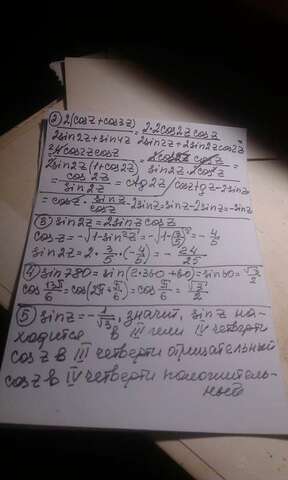 2) 2(cosz+cos3z) / 2sin2z+sin4z = 2·2cos2z cosz / 2sin2z+2sin2z cos2z =
4cos2z cosz / 2sin2z(1+cos2z) = 4cos2z cosz / sin2z·2cos²z =
= cos2z / sin2z = ctg2z / cosz tgz-2sinz=
= cosz· sinz/cosz -2sinz=sinz-2sinz=-sinz
3) sin2z=2sinz cosz
cosz=-√1-sin²z=-√1-(3/5)²=-4/5
sin2z=2·3/5·(-4/5)=-24/25
4) sin780=sin(2·360+60)=sin60=√3/2
cos 13π/6=cos(2π+π/6)=cos π/6=√3/2
5) sinz=-1/√3, значит, sinz на-
ходится в III или IV четверти
cosz в III четверти отрицательный
cosz в IV четверти положитель-
ный